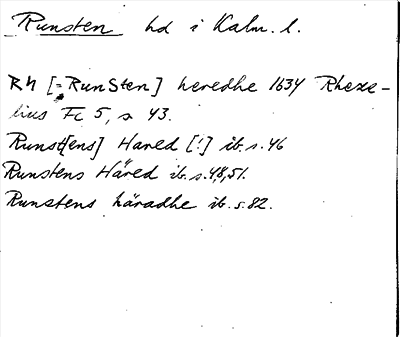 Runsten hd i Kalm. l.
RH [= RunSten] heredhe 1634 Rhexe-
lius Fc 5, s 43.
Runst[ens] Hared [!] ib. s. 46
Runstens Häred ib. s. 48, 51.
Runstens häradhe ib. s. 82.